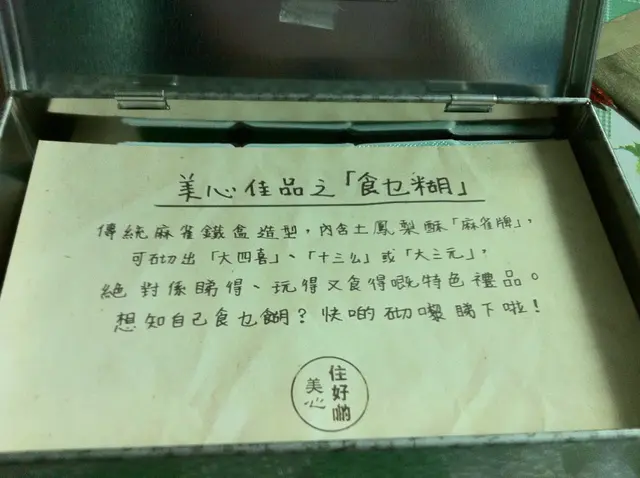 美心佳品之「食乜糊」
傳統麻雀鐵盒造型，內含土鳳梨酥「麻雀牌」，
可砌出「大四喜」、「十三么」或「大三元」，
絕對係睇得、玩得又食得嘅特色禮品。
想知自己食乜餬？快啲砌嚟睇下啦！
美心
住好啲